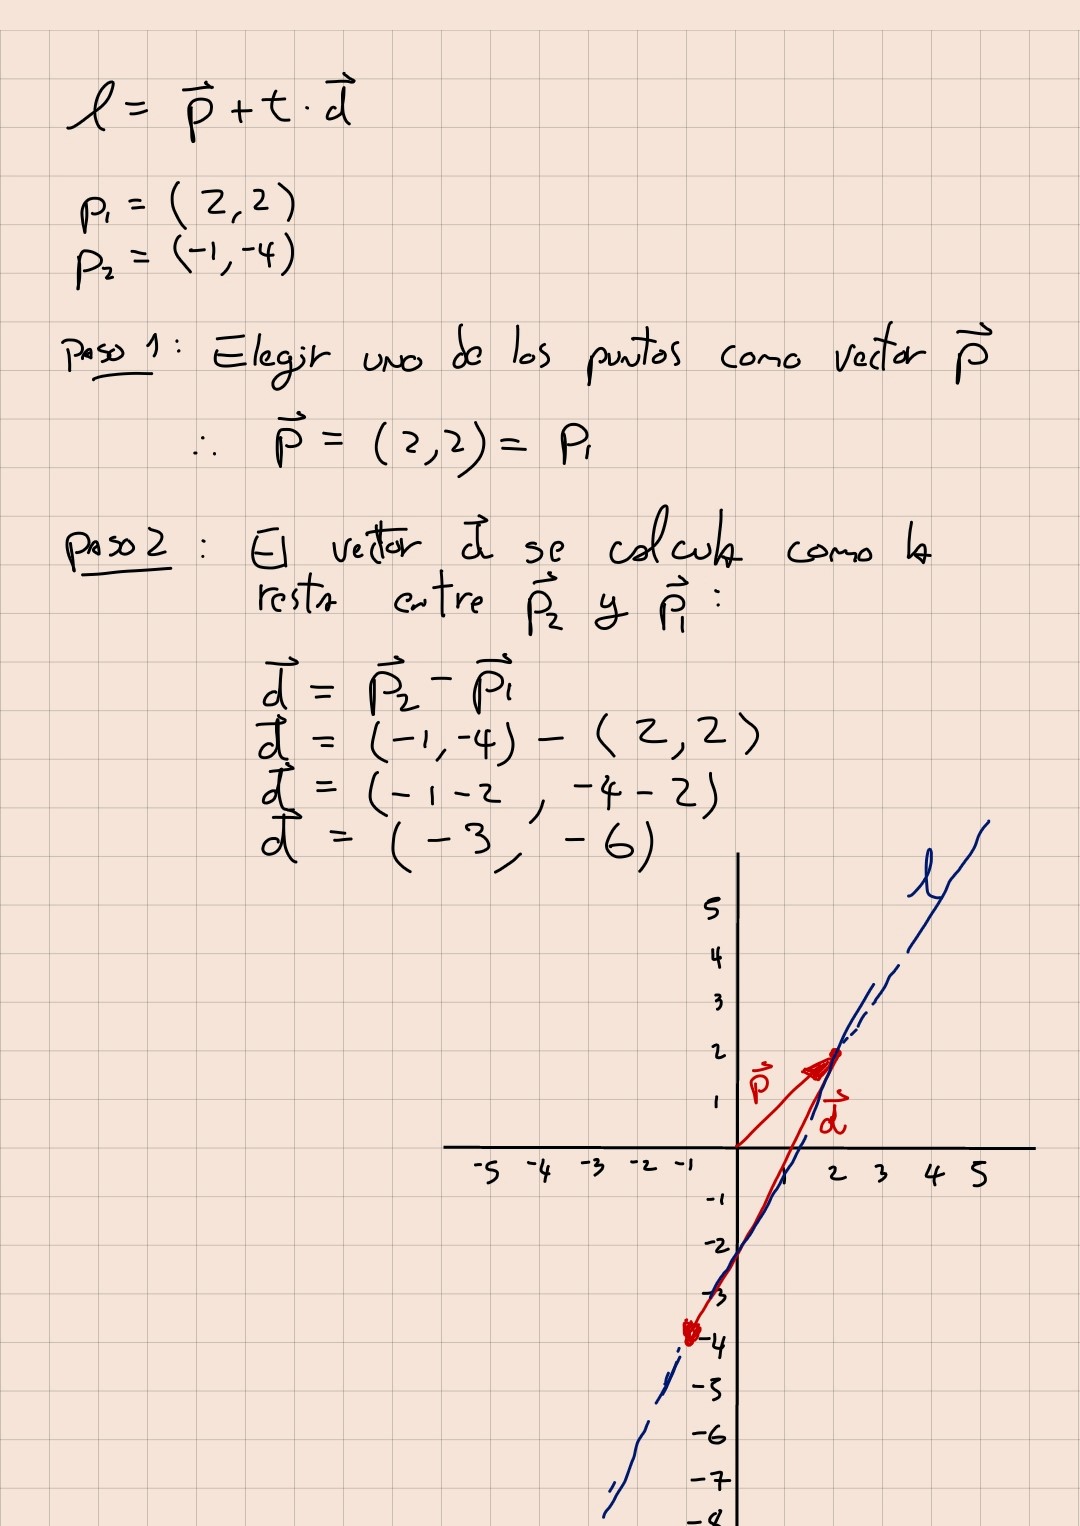 l = p⃗ + t · d⃗
p₁ = (2,2)
p₂ = (-1,-4)
Paso 1: Elegir uno de los puntos como vector p⃗
∴ p⃗ = (2,2) = P₁
Paso 2: El vector d⃗ se calcula como la
resta entre p⃗₂ y p⃗₁:
d⃗ = p⃗₂ - p⃗₁
d⃗ = (-1,-4) - (2,2)
d⃗ = (-1-2, -4-2)
d⃗ = (-3, -6)
l
5
4
3
2
p⃗
1
d⃗
-5 -4 -3 -2 -1 1 2 3 4 5
-1
-2
-3
-4
-5
-6
-7
-8